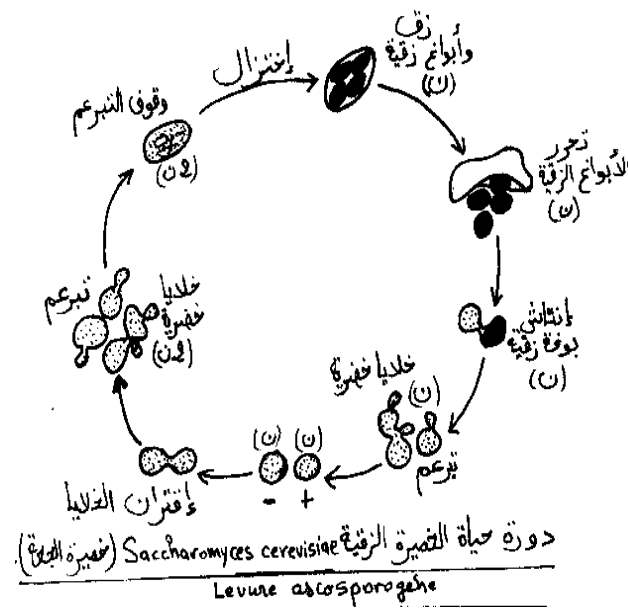 زق
وأبواغ زقية
(ن)
إختزال
وقوف التبرعم
(2ن)
تحرر
الأبواغ الزقية
(ن)
إنتاش
بوغة زقية
(ن)
خلايا خضرية
(ن)
تبرعم
(ن) (ن)
- +
إقتران الخلايا
تبرعم
خلايا
خضرية
(2ن)
دورة حياة الخميرة الزقية Saccharomyces cerevisiae (خميرة الجعة).
Levure ascosporogène